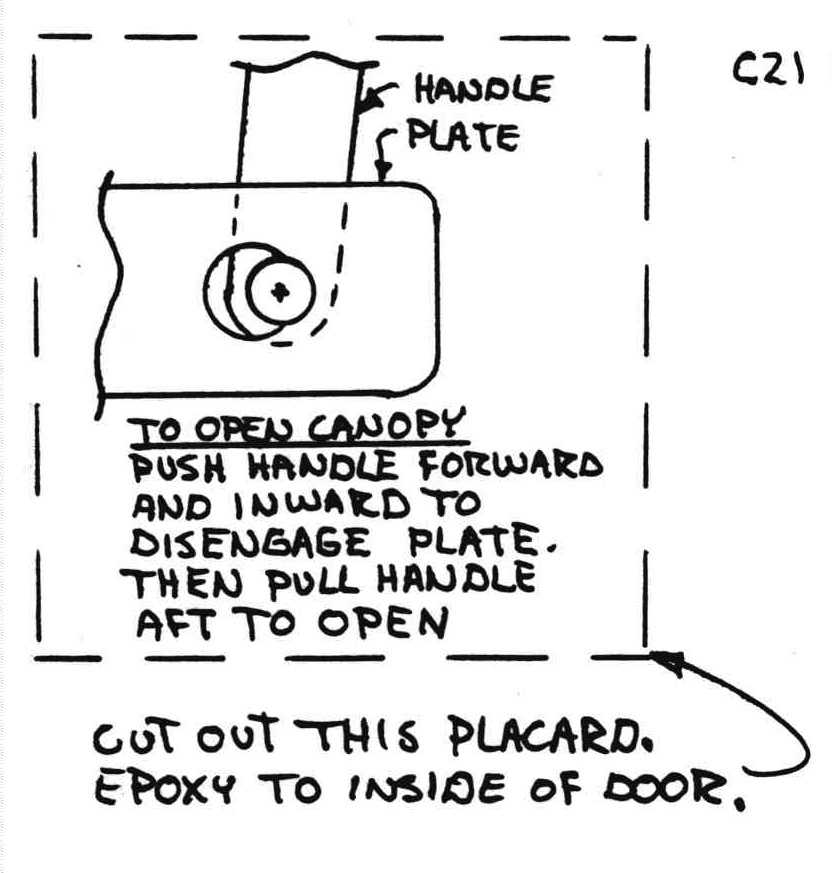 C21
HANDLE
PLATE
TO OPEN CANOPY
PUSH HANDLE FORWARD
AND INWARD TO
DISENGAGE PLATE.
THEN PULL HANDLE
AFT TO OPEN
CUT OUT THIS PLACARD.
EPOXY TO INSIDE OF DOOR.